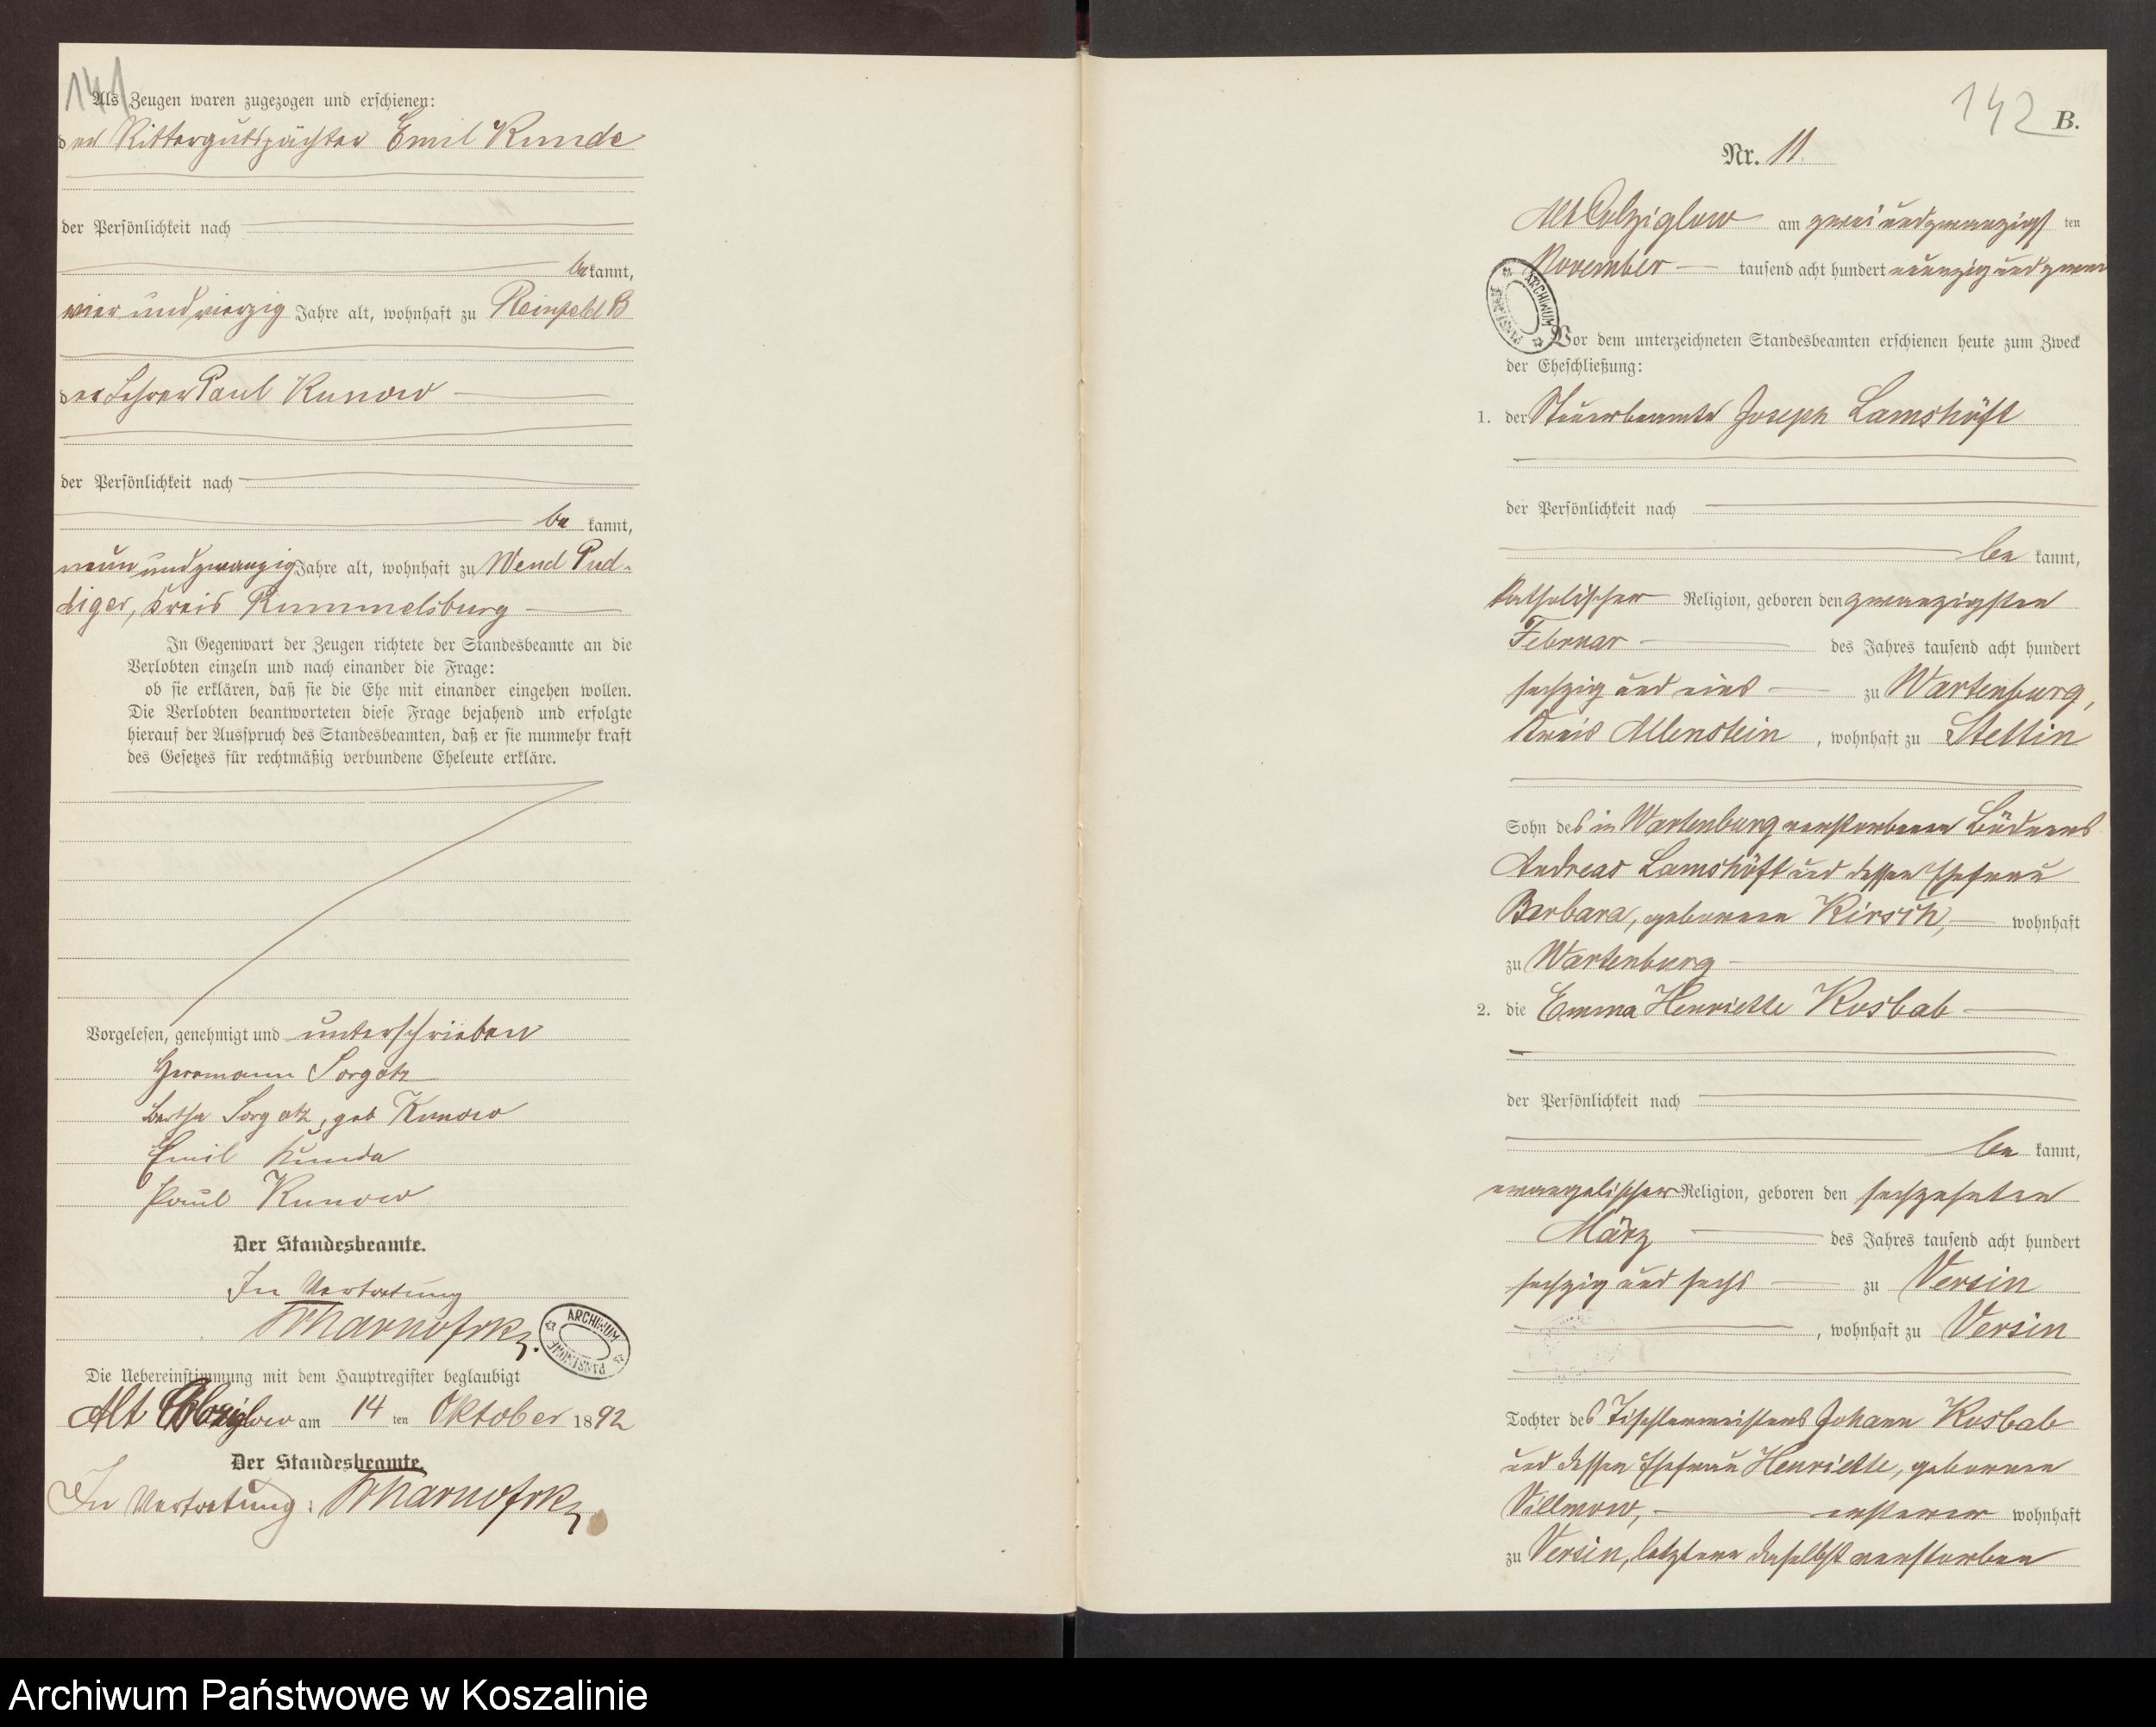 141
Als Zeugen waren zugezogen und erschienen:
der Rittergutspächter Emil Kunde
der Persönlichkeit nach
bekannt,
vier und vierzig Jahre alt, wohnhaft zu Reinfeld B
der Lehrer Paul Kunow
der Persönlichkeit nach
be kannt,
neun und zwanzig Jahre alt, wohnhaft zu Wend Pud-
diger, Kreis Rummelsburg
In Gegenwart der Zeugen richtete der Standesbeamte an die
Verlobten einzeln und nach einander die Frage:
ob sie erklären, daß sie die Ehe mit einander eingehen wollen.
Die Verlobten beantworteten diese Frage bejahend und erfolgte
hierauf der Ausspruch des Standesbeamten, daß er sie nunmehr kraft
des Gesetzes für rechtmäßig verbundene Eheleute erkläre.
Vorgelesen, genehmigt und unterschrieben
Herrmann Sorgatz
Bertha Sorgatz, geb Kunow
Emil Kunde
Paul Kunow
Der Standesbeamte.
In Vertretung
ARCHIWUM PAŃSTWOWE
Die Uebereinstimmung mit dem Hauptregister beglaubigt
Alt Colziglow am 14 ten Oktober 1892
Der Standesbeamte.
In Vertretung:
142 B.
Nr. 11.
Alt Colziglow am zwei und zwanzigst ten
November tausend acht hundert neunzig und zwei
ARCHIWUM PAŃSTWOWE
Vor dem unterzeichneten Standesbeamten erschienen heute zum Zweck
der Eheschließung:
1. der Steuerbeamte Joseph Lamshöft
der Persönlichkeit nach
be kannt,
katholischer Religion, geboren den zwanzigsten
Februar des Jahres tausend acht hundert
sechzig und eins zu Wartenburg,
Kreis Allenstein, wohnhaft zu Stettin
Sohn des in Wartenburg verstorbenen Büdners
Andreas Lamshöft und dessen Ehefrau
Barbara, geborenen Kirsch, wohnhaft
zu Wartenburg
2. die Emma Henriette Kosbab
der Persönlichkeit nach
be kannt,
evangelischer Religion, geboren den sechzehnten
März des Jahres tausend acht hundert
sechzig und sechs zu Versin
, wohnhaft zu Versin
Tochter des Tischlermeisters Johann Kosbab
und dessen Ehefrau Henriette, geborenen
Villmow, ersterer wohnhaft
zu Versin, letztere daselbst verstorben
Archiwum Państwowe w Koszalinie